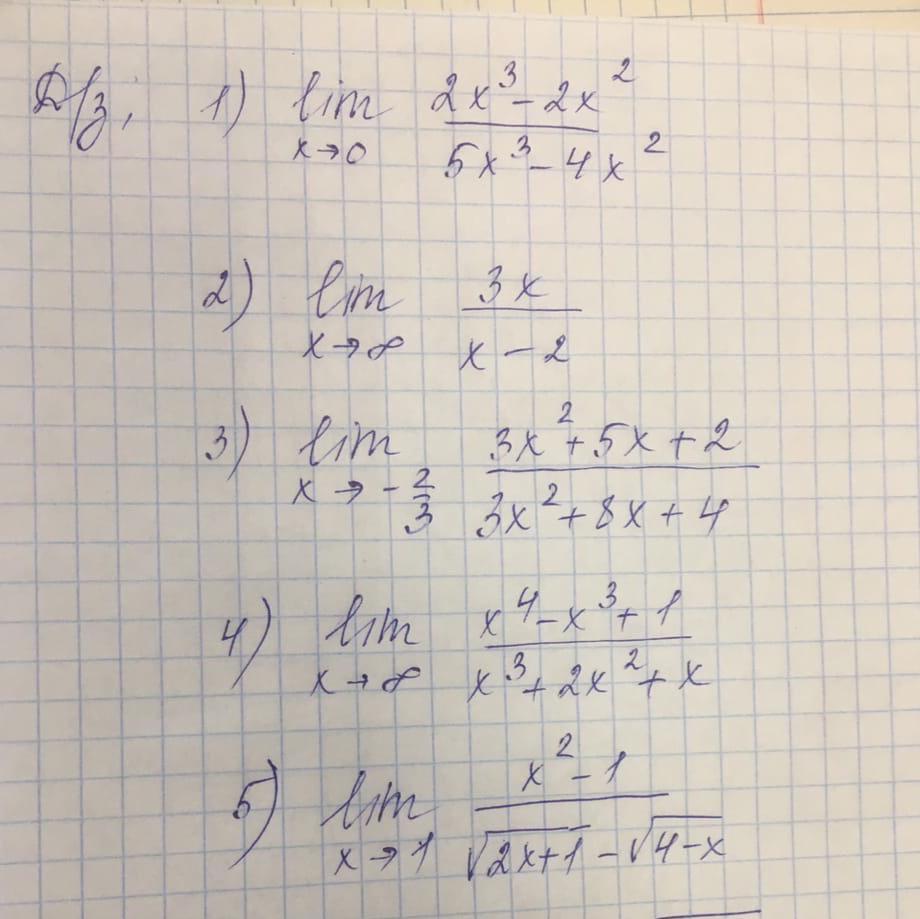 Д/з, 1) lim x→0 (2x³ - 2x²)/(5x³ - 4x²)
2) lim x→∞ 3x/(x - 2)
3) lim x→-2/3 (3x² + 5x + 2)/(3x² + 8x + 4)
4) lim x→∞ (x⁴ - x³ + 1)/(x³ + 2x² + x)
5) lim x→1 (x² - 1)/(√(2x+1) - √(4-x))